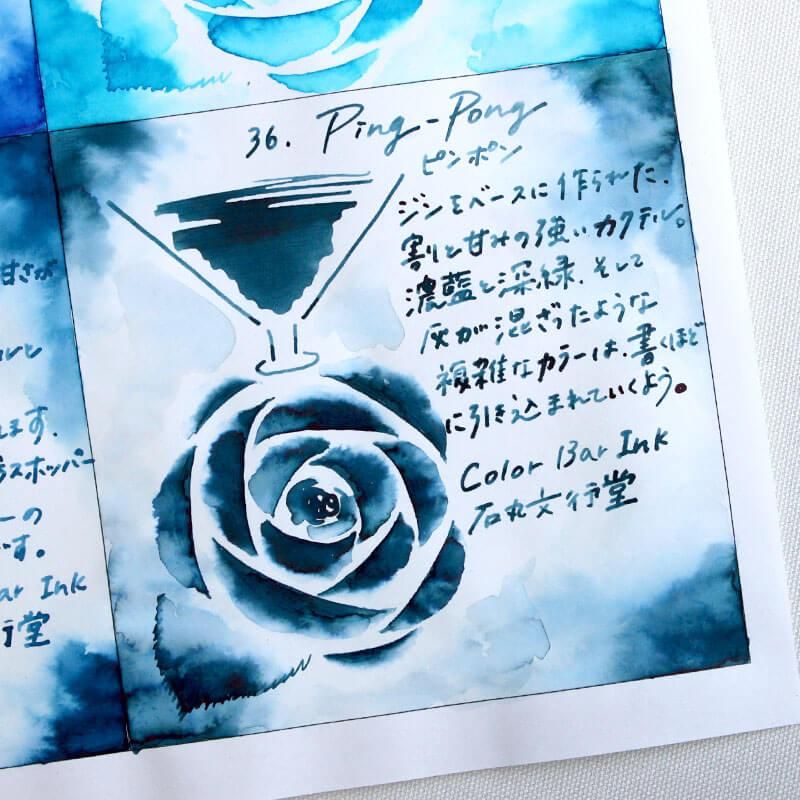 甘さが
ルと
ます.
ラスホッパー
ーの
です。
ar Ink
行堂
36. Ping-Pong
ピンポン
ジンをベースに作られた、
割と甘みの強いカクテル。
濃藍と深緑、そして
灰が混ざったような
複雑なカラーは、書くほど
に引き込まれていくよう。
Color Bar Ink
石丸文行堂